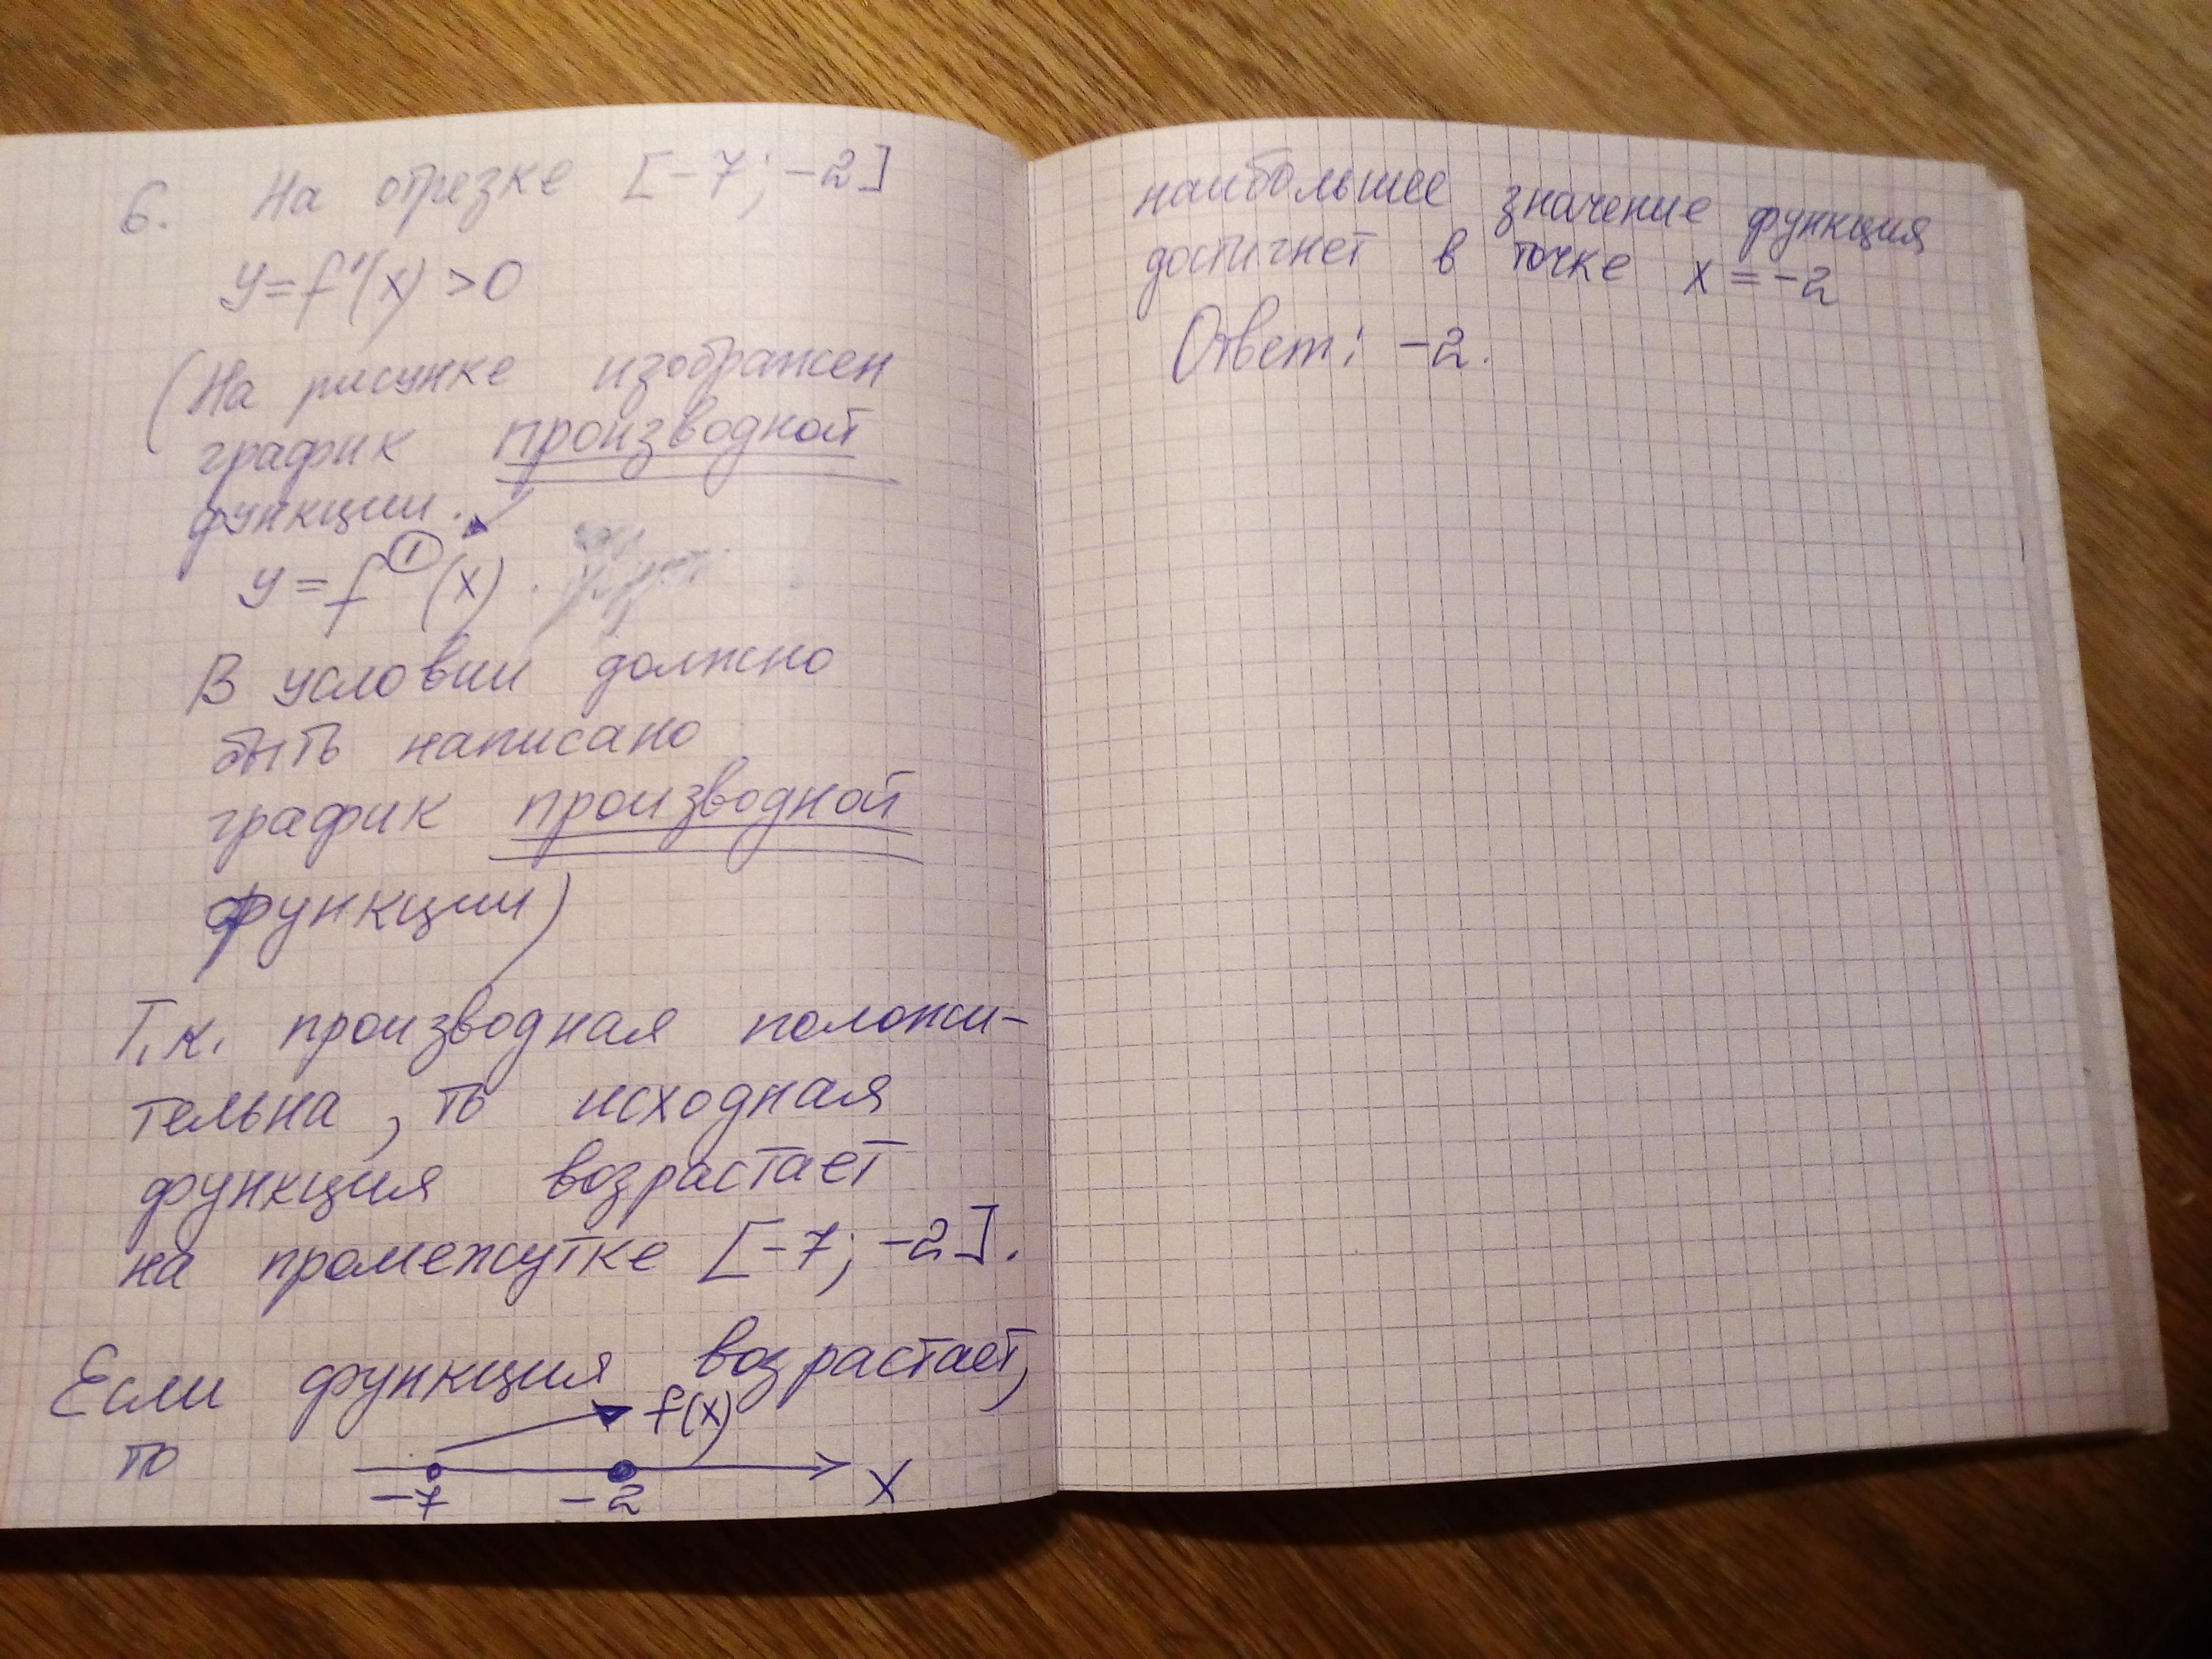 6. На отрезке [-7; -2]
y = f'(x) > 0
(На рисунке изображен
график производной
функции.
y = f'(x).
В условии должно
быть написано
график производной
функции)
Т.к. производная положи-
тельна, то исходная
функция возрастает
на промежутке [-7; -2].
Если функция возрастает,
то
f(x)
-7 -2 x
наибольшее значение функция
достигнет в точке x = -2
Ответ: -2.